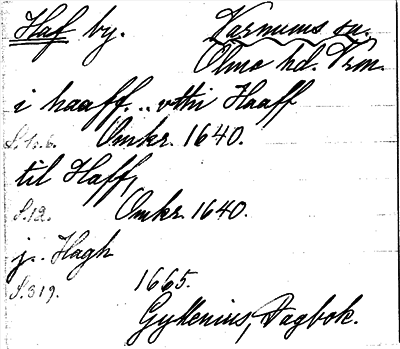 Haf by. Varnums sn.
Ölme hd. Vrm.
i haaff... vthi Haaff
S. 1o. 6. Omkr. 1640.
til Haff,
S. 12. Omkr. 1640.
j. Hagh
S. 319. 1665.
Gyllenius, Dagbok.